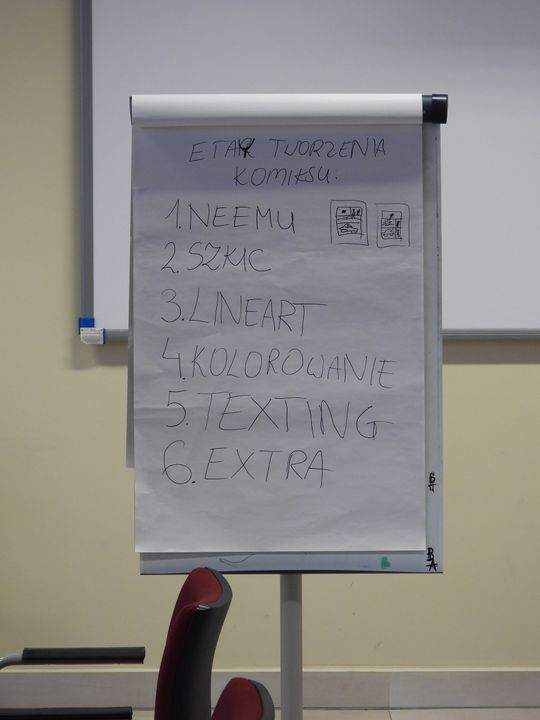 ETAPY TWORZENIA
KOMIKSU:
1. NEEMU
2. SZKIC
3. LINEART
4. KOLOROWANIE
5. TEXTING
6. EXTRA